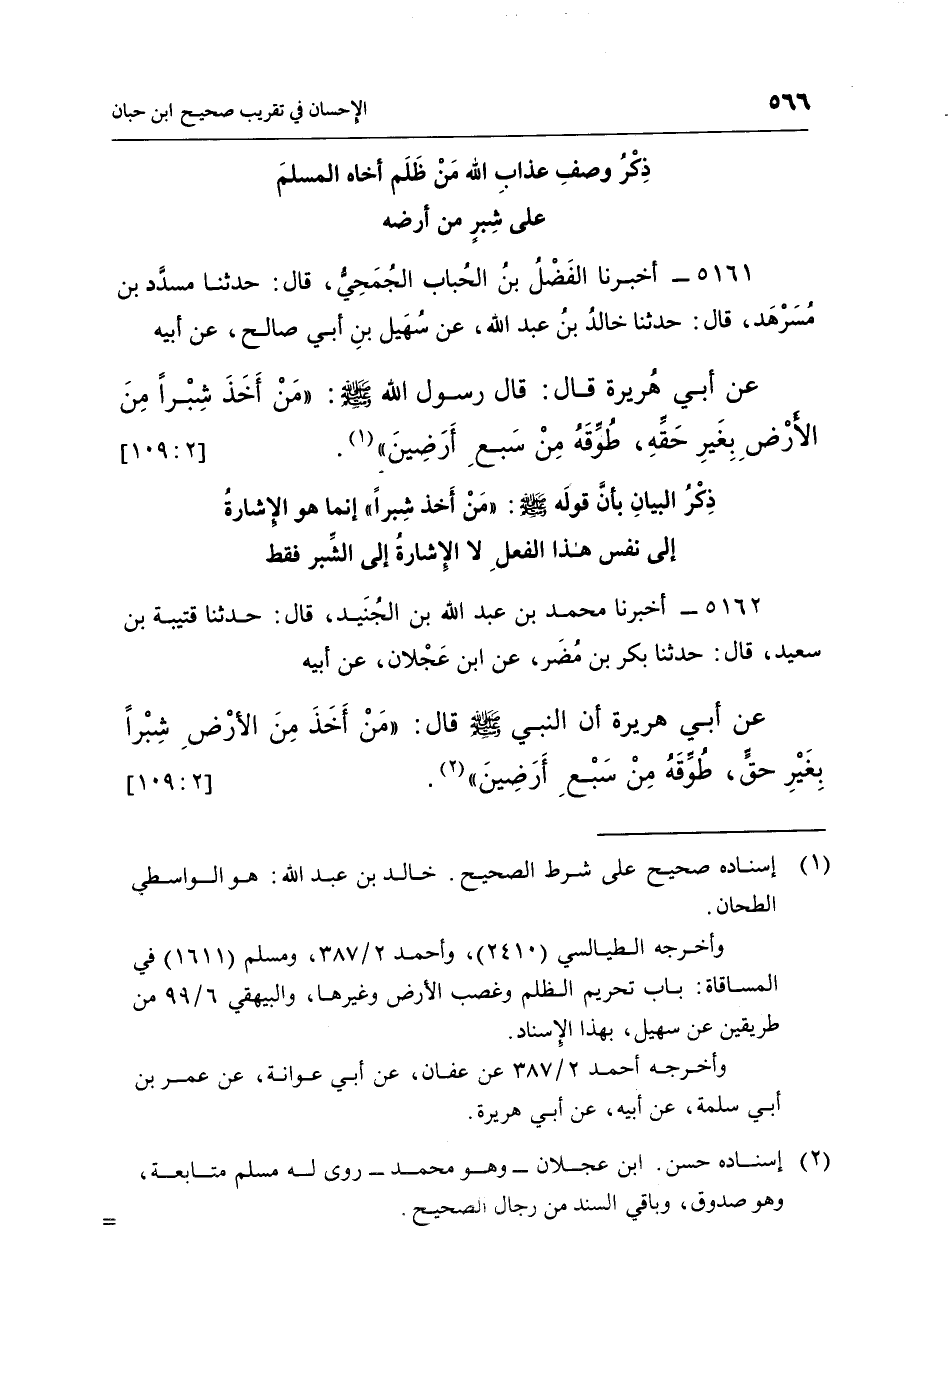 ٥٦٦
الإحسان في تقريب صحيح ابن حبان
ذِكْرُ وصفِ عذابِ الله مَنْ ظَلَم أخاه المسلمَ
على شِبرٍ من أرضه
٥١٦١ ــ أخبرنا الفَضْلُ بنُ الحُباب الجُمَحِيُّ، قال: حدثنا مسدَّد بن
مُسَرْهَد، قال: حدثنا خالدُ بنُ عبد الله، عن سُهَيل بنِ أبي صالح، عن أبيه
عن أبي هُريرة قال: قال رسول الله ﷺ: «مَنْ أَخَذَ شِبْراً مِنَ
الأَرْضِ بِغَيرِ حَقِّهِ، طُوِّقَهُ مِنْ سَبعِ أَرَضِينَ»(١). [٢:١٠٩]
ذِكْرُ البيان بأنَّ قولَه ﷺ: «مَنْ أخذ شِبراً» إنما هو الإِشارةُ
إلى نفس هذا الفعلِ لا الإِشارةُ إلى الشِّبر فقط
٥١٦٢ ــ أخبرنا محمد بن عبد الله بن الجُنَيد، قال: حدثنا قتيبة بن
سعيد، قال: حدثنا بكر بن مُضَر، عن ابن عَجْلان، عن أبيه
عن أبي هريرة أن النبي ﷺ قال: «مَنْ أَخَذَ مِنَ الأرْضِ شِبْراً
بِغَيْرِ حقٍّ، طُوِّقَهُ مِنْ سَبْعِ أَرَضِينَ»(٢). [٢:١٠٩]
(١) إسناده صحيح على شرط الصحيح. خالد بن عبد الله: هو الواسطي
الطحان.
وأخرجه الطيالسي (٢٤١٠)، وأحمد ٣٨٧/٢، ومسلم (١٦١١) في
المساقاة: باب تحريم الظلم وغصب الأرض وغيرها، والبيهقي ٩٩/٦ من
طريقين عن سهيل، بهذا الإسناد.
وأخرجه أحمد ٣٨٧/٢ عن عفان، عن أبي عوانة، عن عمر بن
أبي سلمة، عن أبيه، عن أبي هريرة.
(٢) إسناده حسن. ابن عجلان ــ وهو محمد ــ روى له مسلم متابعة،
وهو صدوق، وباقي السند من رجال الصحيح.
=